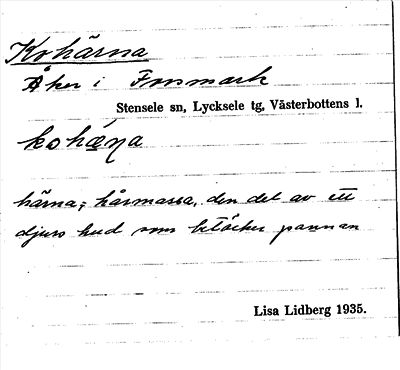 Kohärna
Åker i Fursmark
Stensele sn, Lycksele tg, Västerbottens l.
kohæṇa
härna, hårmassa, den del av ett
djurs hud som betäcker pannan
Lisa Lidberg 1935.